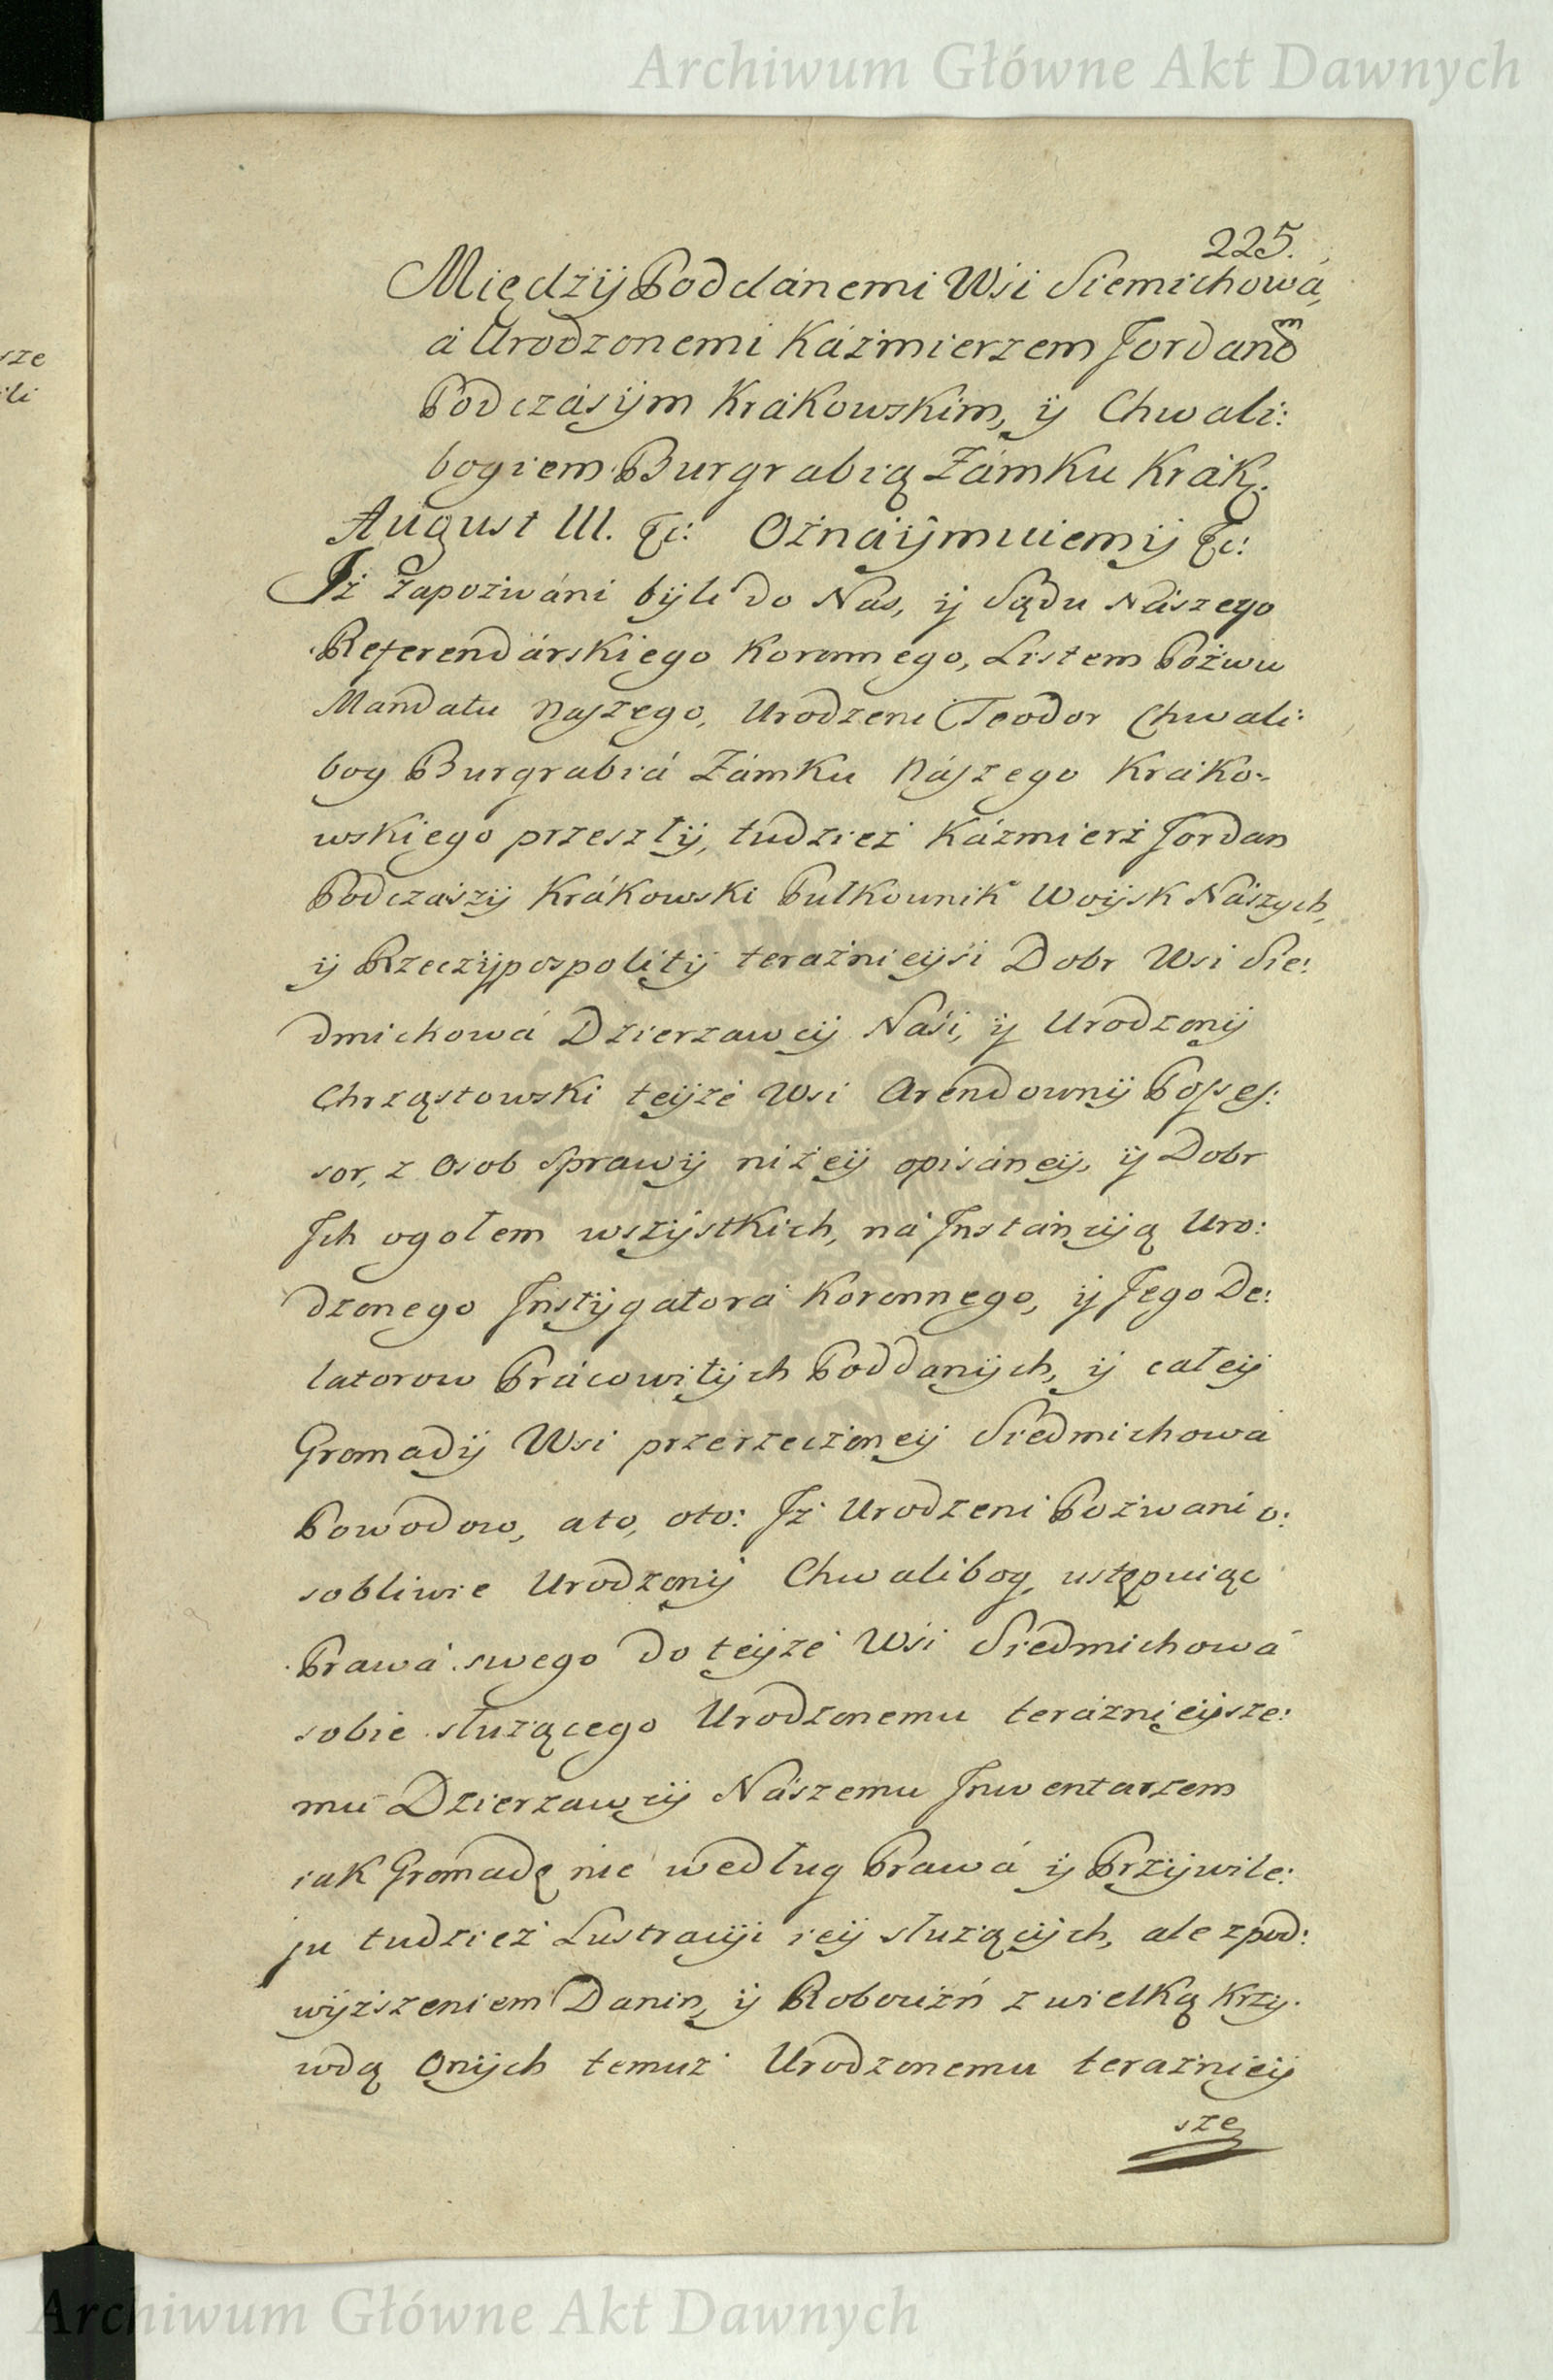 Archiwum Główne Akt Dawnych
225.
Międzÿ Poddánemi Wśi Siemichowá,
á Urodzonemi Káźmierzem Jordanem
Podczásÿm Krákowskim, ÿ Chwali:
bogiem Burgrabią Zámku Krák.
August III. &c: Oznáÿmuiemÿ &c:
Iż zapozwáni bÿli do Nas, ÿ Sądu Nászego
Referendárskiego Koronnego, Listem Pozwu
Mandatu naszego, Urodzeni Teodor Chwali:
bog Burgrabiá Zámku nászego Kráko:
wskiego przeszłÿ, tudzież Káźmierz Jordan
Podczászÿ Krákowski Pułkownik Woÿsk Nászych,
ÿ Rzeczÿpospolitÿ teraźnieÿśi Dobr Wsi Sie:
dmichowá Dzierzawcÿ Naśi, ÿ Urodzonÿ
Chrząstowski teÿże Wsi Arendownÿ Posses:
sor, z Osob Sprawÿ niżeÿ opisáneÿ, ÿ Dobr
Ich ogołem wszÿstkich, ná Instáncÿą Uro:
dzonego Instÿgatorá Koronnego, ÿ Jego De:
latorow Prácowitÿch Poddanÿch, ÿ całeÿ
Gromadÿ Wsi przerzeczoneÿ Siedmichowá
Powodow, ato, oto: Iż Urodzeni Pozwani o:
sobliwie Urodzonÿ Chwalibog, ustępuiąc
Prawá swego do teÿże Wśi Siedmichowá
sobie służącego Urodzonemu teráznieÿsze:
mu Dzierzawcÿ Nászemu Inwentarzem
iak Gromadę nie według Prawá ÿ Przÿwile:
ju tudzież Lustracÿi ieÿ służącÿch, ale z pod:
wÿższeniem Danin, ÿ Roboćizń z wielką Krzÿ:
wdą Onÿch temuż Urodzonemu teraźnieÿ
sze
sze
ili
Archiwum Główne Akt Dawnych